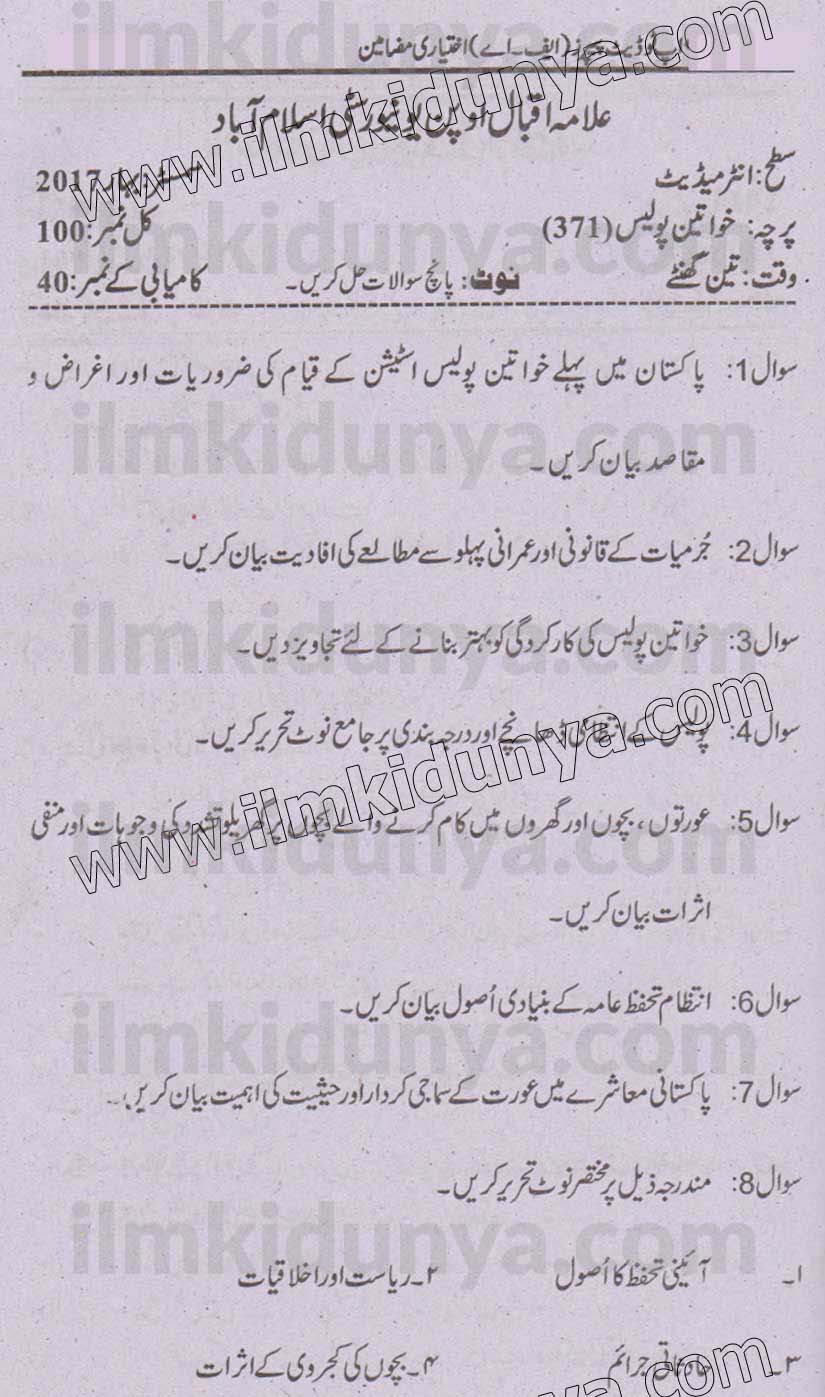 اپ ٹو ڈیٹ پیپرز (ایف۔اے) اختیاری مضامین
علامہ اقبال اوپن یونیورسٹی اسلام آباد
سطح: انٹرمیڈیٹ سمسٹر: بہار 2017
پرچہ: خواتین پولیس (371) کل نمبر: 100
وقت: تین گھنٹے نوٹ: پانچ سوالات حل کریں۔ کامیابی کے نمبر: 40
سوال 1: پاکستان میں پہلے خواتین پولیس اسٹیشن کے قیام کی ضروریات اور اغراض و
مقاصد بیان کریں۔
سوال 2: جُرمیات کے قانونی اور عمرانی پہلو سے مطالعے کی افادیت بیان کریں۔
سوال 3: خواتین پولیس کی کارکردگی کو بہتر بنانے کے لئے تجاویز دیں۔
سوال 4: پولیس کے انتظامی ڈھانچے اور درجہ بندی پر جامع نوٹ تحریر کریں۔
سوال 5: عورتوں، بچوں اور گھروں میں کام کرنے والے بچوں پر گھریلو تشدد کی وجوہات اور منفی
اثرات بیان کریں۔
سوال 6: انتظام تحفظ عامہ کے بنیادی اُصول بیان کریں۔
سوال 7: پاکستانی معاشرے میں عورت کے سماجی کردار اور حیثیت کی اہمیت بیان کریں۔
سوال 8: مندرجہ ذیل پر مختصر نوٹ تحریر کریں۔
۱۔ آئینی تحفظ کا اُصول ۲۔ ریاست اور اخلاقیات
۳۔ حادثاتی جرائم ۴۔ بچوں کی کجروی کے اثرات
www.ilmkidunya.com
ilmkidunya.com
ilmkidunya.com
ilmkidunya.com
www.ilmkidunya.com
ilmkidunya.com
ilmkidunya.com
ilmkidunya.com